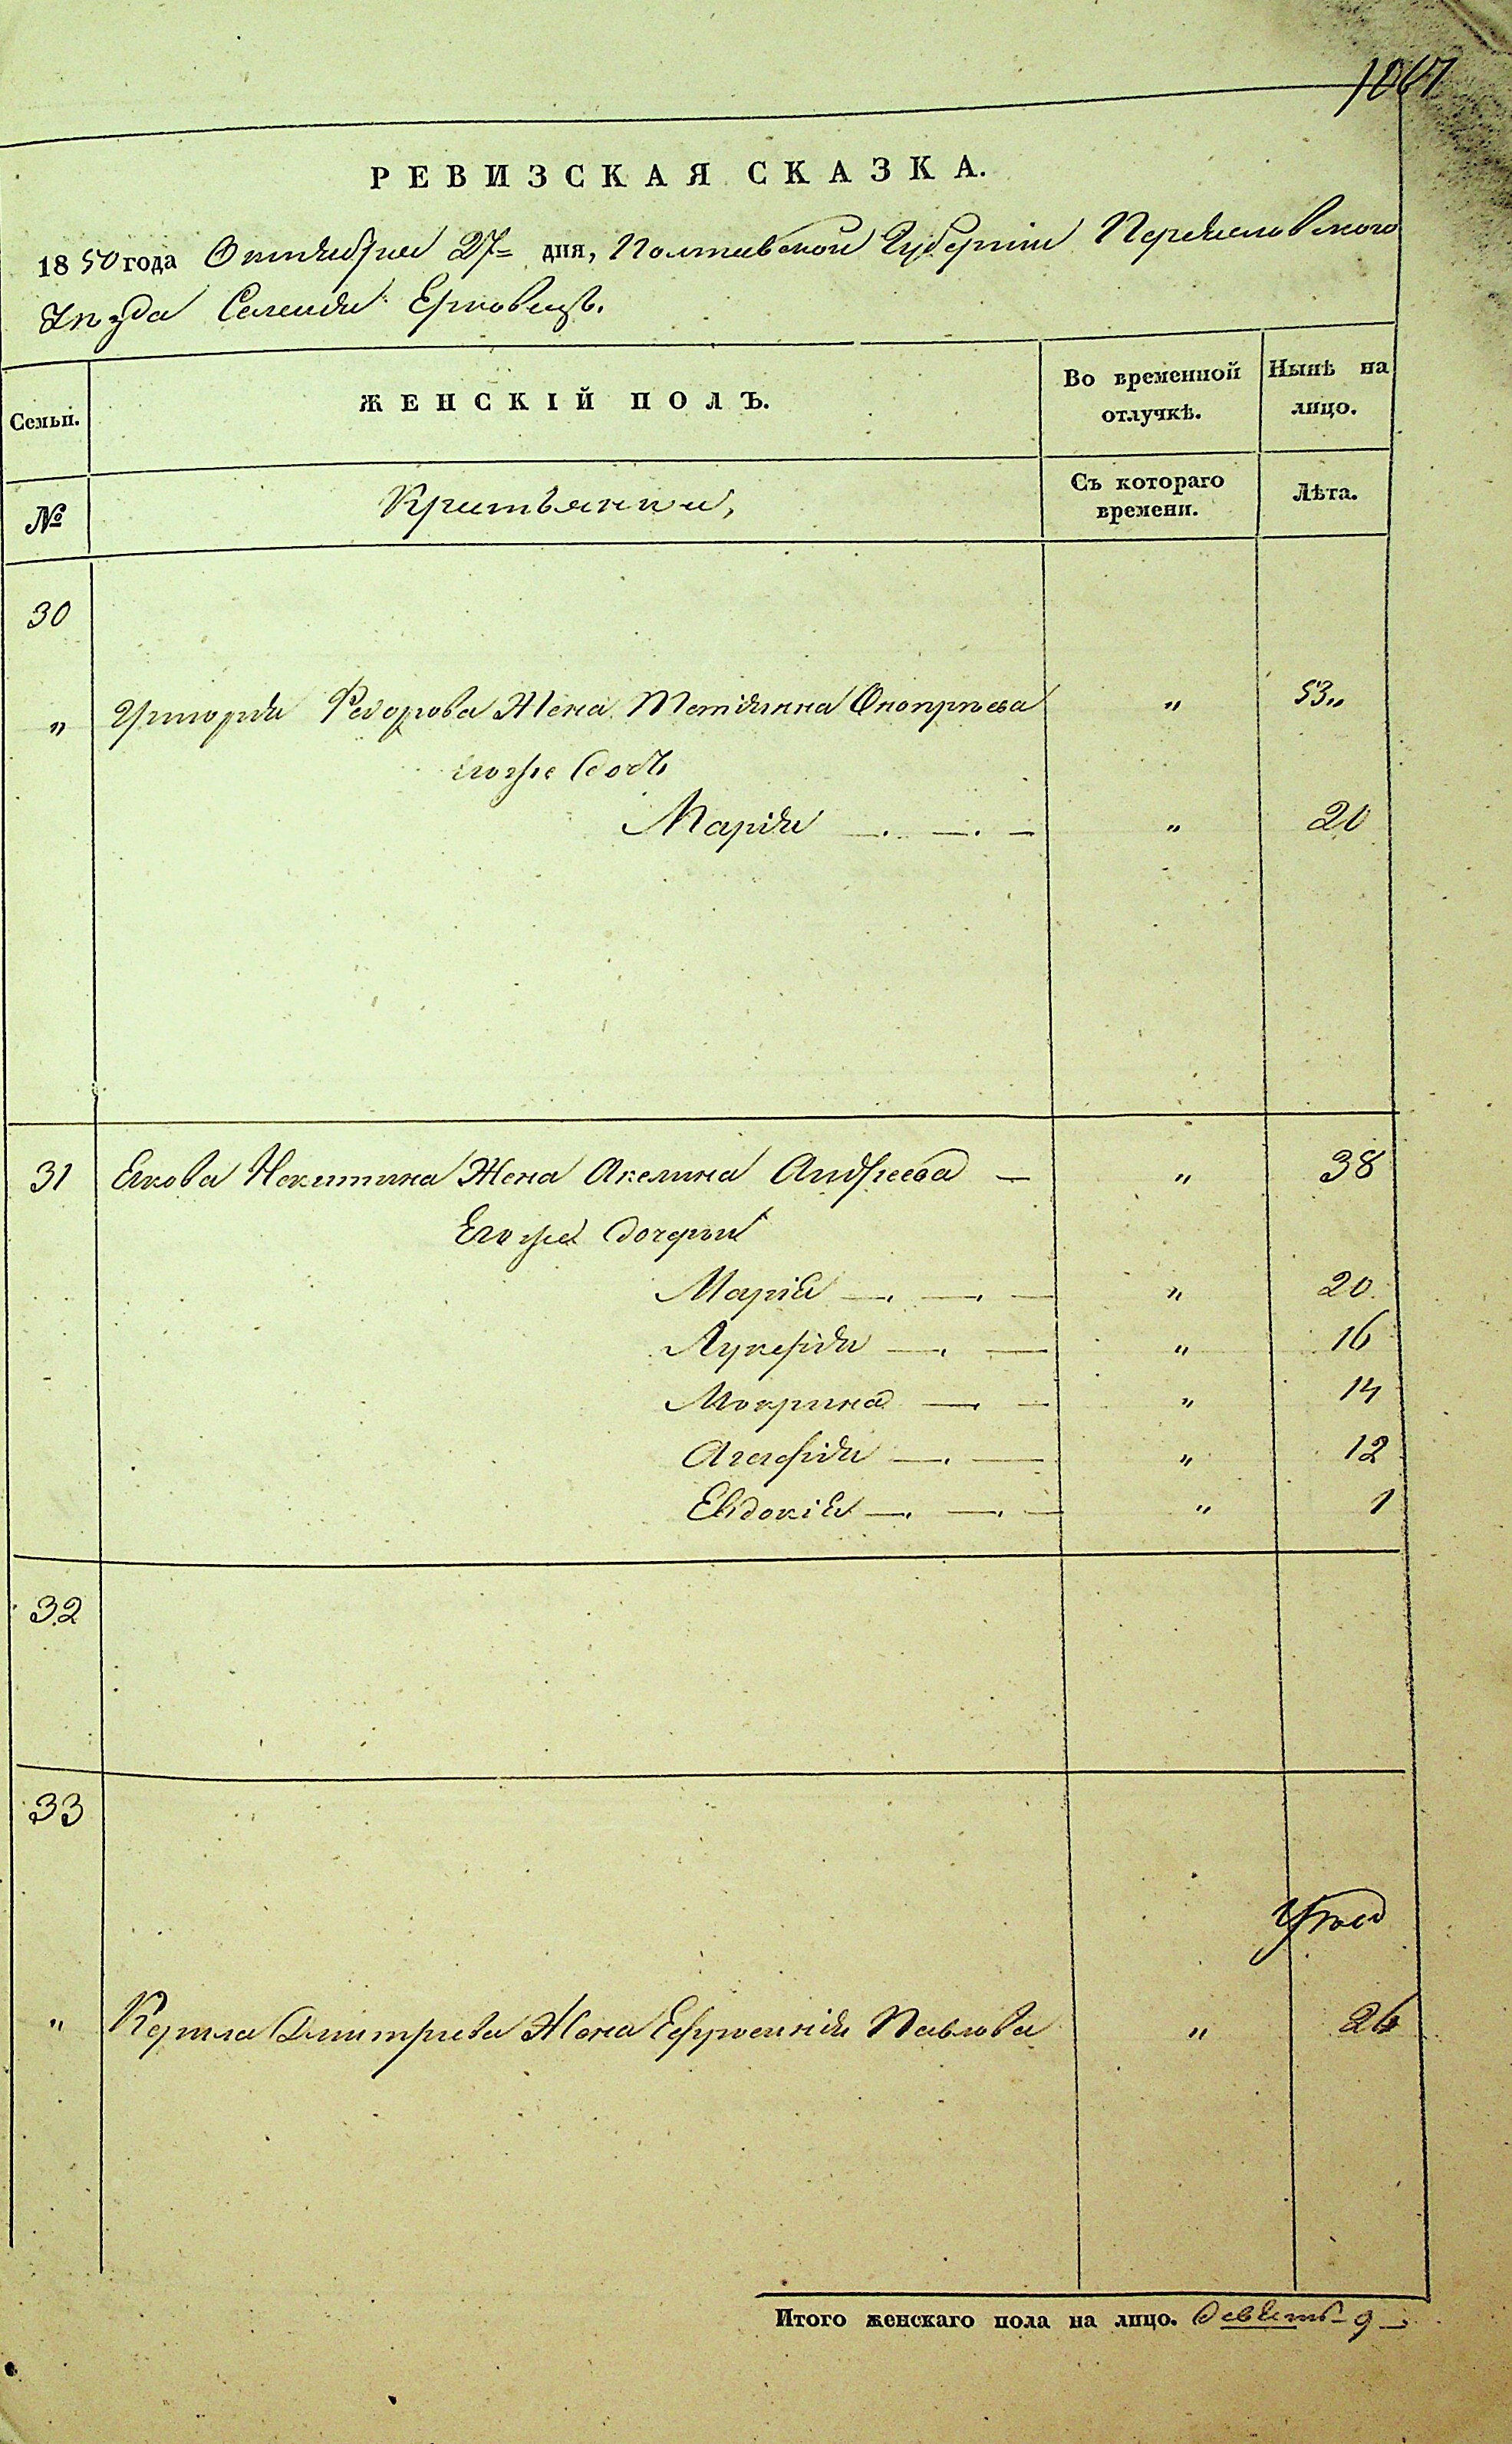 1067
РЕВИЗСКАЯ СКАЗКА.
1850 года Октября 27 дня, Полтавской Губерніи Переяславского
Уѣзда Селенія Ерковецъ.
Семьи. ЖЕНСКІЙ ПОЛЪ. Во временной отлучкѣ. Нынѣ на лицо.
№ Крестьянки, Съ котораго времени. Лѣта.
30
„ Григорія Федорова Жена Татіянна Онопріева „ 53„
егоже дочь
Марія — . — . — „ 20
31 Якова Никитина Жена Акелина Андреева — „ 38
Егоже дочери
Марія — . — . — „ 20
Лукерія — . — „ 16
Мокрина — . — „ 14
Агафія — . — „ 12
Евдокія — . — . — „ 1
32
33
„ Корнила Дмитріева Жена Ефросинія Павлова „ 26
Итого женскаго пола на лицо. девять 9 —